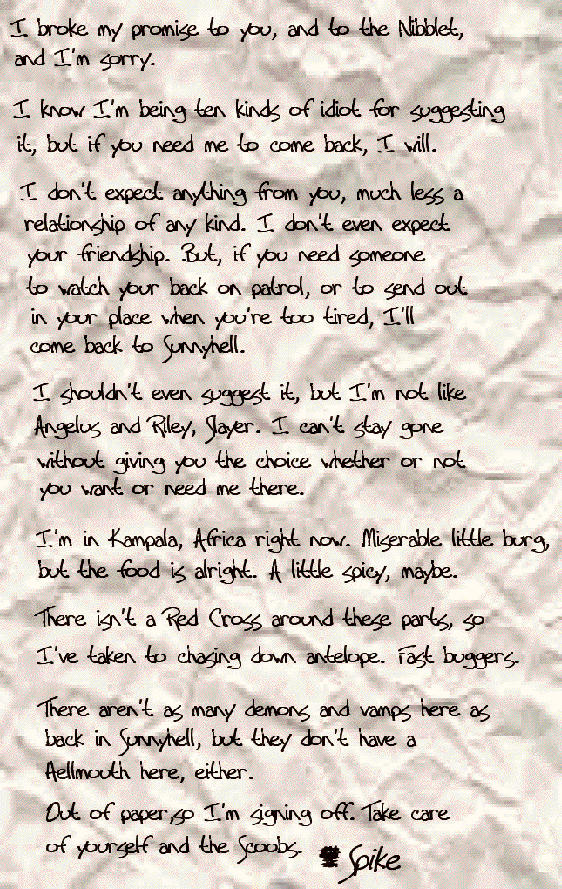 I broke my promise to you, and to the Nibblet,
and I'm sorry.
I know I'm being ten kinds of idiot for suggesting
it, but if you need me to come back, I will.
I don't expect anything from you, much less a
relationship of any kind. I don't even expect
your friendship. But, if you need someone
to watch your back on patrol, or to send out
in your place when you're too tired, I'll
come back to Sunnyhell.
I shouldn't even suggest it, but I'm not like
Angelus and Riley, Slayer. I can't stay gone
without giving you the choice whether or not
you want or need me there.
I'm in Kampala, Africa right now. Miserable little burg,
but the food is alright. A little spicy, maybe.
There isn't a Red Cross around these parts, so
I've taken to chasing down antelope. Fast buggers.
There aren't as many demons and vamps here as
back in Sunnyhell, but they don't have a
Hellmouth here, either.
Out of paper,so I'm signing off. Take care
of yourself and the Scoobs.
Spike